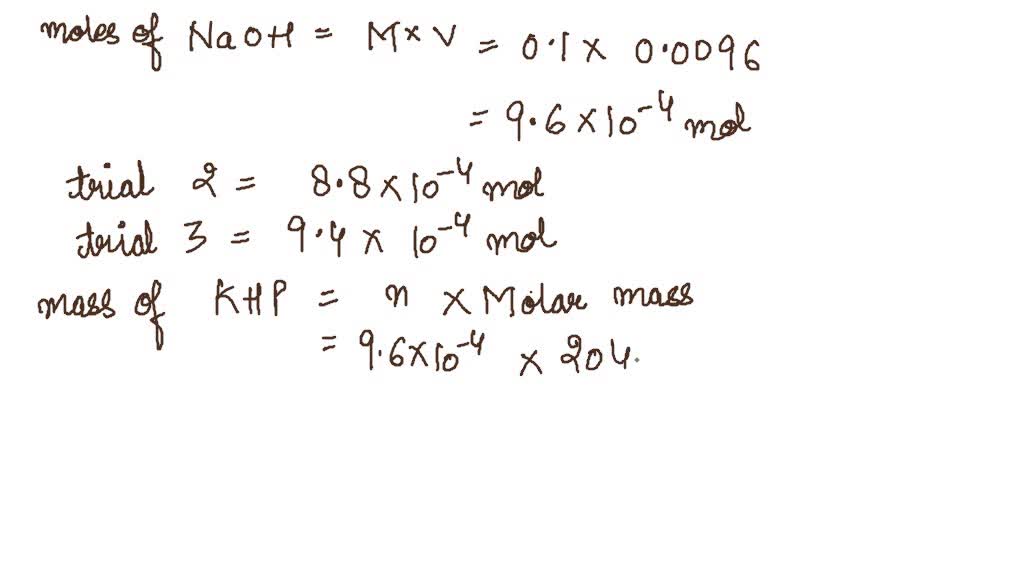 moles of NaOH = M×V = 0.1 × 0.0096
= 9.6 × 10⁻⁴ mol
trial 2 = 8.8 × 10⁻⁴ mol
trial 3 = 9.4 × 10⁻⁴ mol
mass of KHP = n × Molar mass
= 9.6×10⁻⁴ × 204.